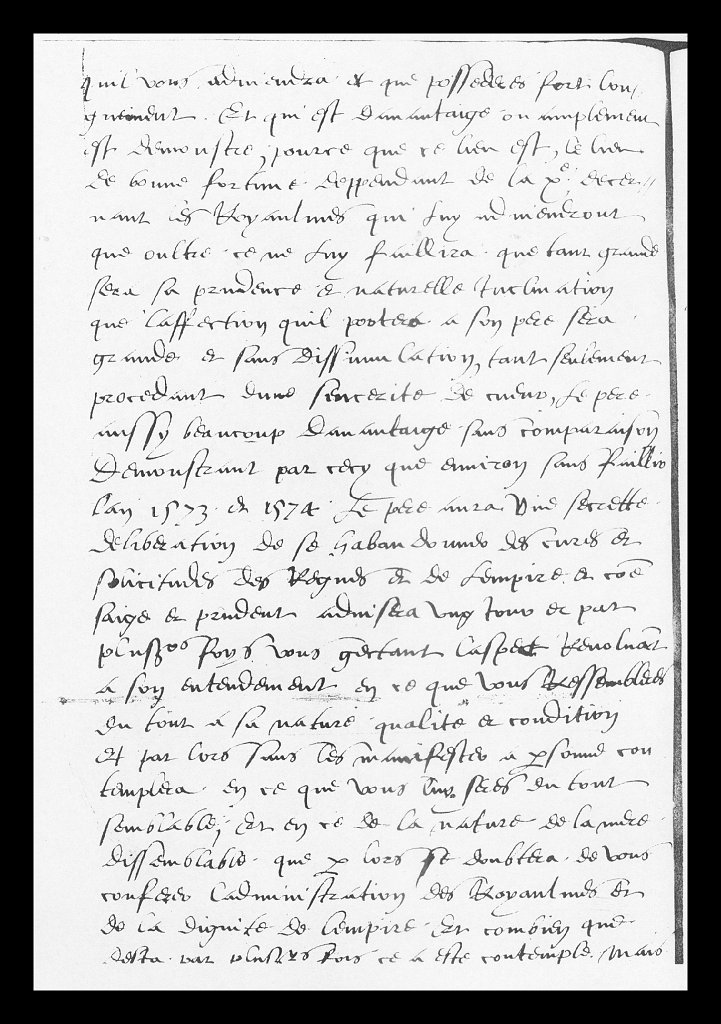 quil vous adviendra et que possederes fort lon,
guement. Et qui est davantaige ou amplement
est demonstre, pource que ce lieu est, le lieu
de bonne fortune deppendant de la xe, decer//
nant les Royaulmes qui luy adviendront
que oultre ce ne luy faillira que tant grande
sera sa prudence et naturelle Inclination
que laffection quil portera a son pere sera
grande et sans dissimulation, tant seulement
procedant dune sencerite de cueur, Le pere
aussy beaucoup davantaige sans comparaison
Demonstrant par cecy que environ sans faillir
lan 1573 et 1574 Le pere aura Une secrette
deliberation de se habandonner des cures et
solicitudes des Regnes et de Lempire et coe
saige et prudent advisera ung Jour et par
plusrs foys vous gectant laspect Revolvant
a son entendement en ce que vous Ressembleres
du tout a sa nature qualite et condition
Et par lors sans les manifester a psonne con
templera en ce que vous luy seres du tout
semblable, Et en ce de la nature de la mere
dissemblable que p lors se doubtera de vous
conferer ladministration des Royaulmes et
de la dignite de lempire Et combien que
desia par plusrs fois ce a este contemple. Mais